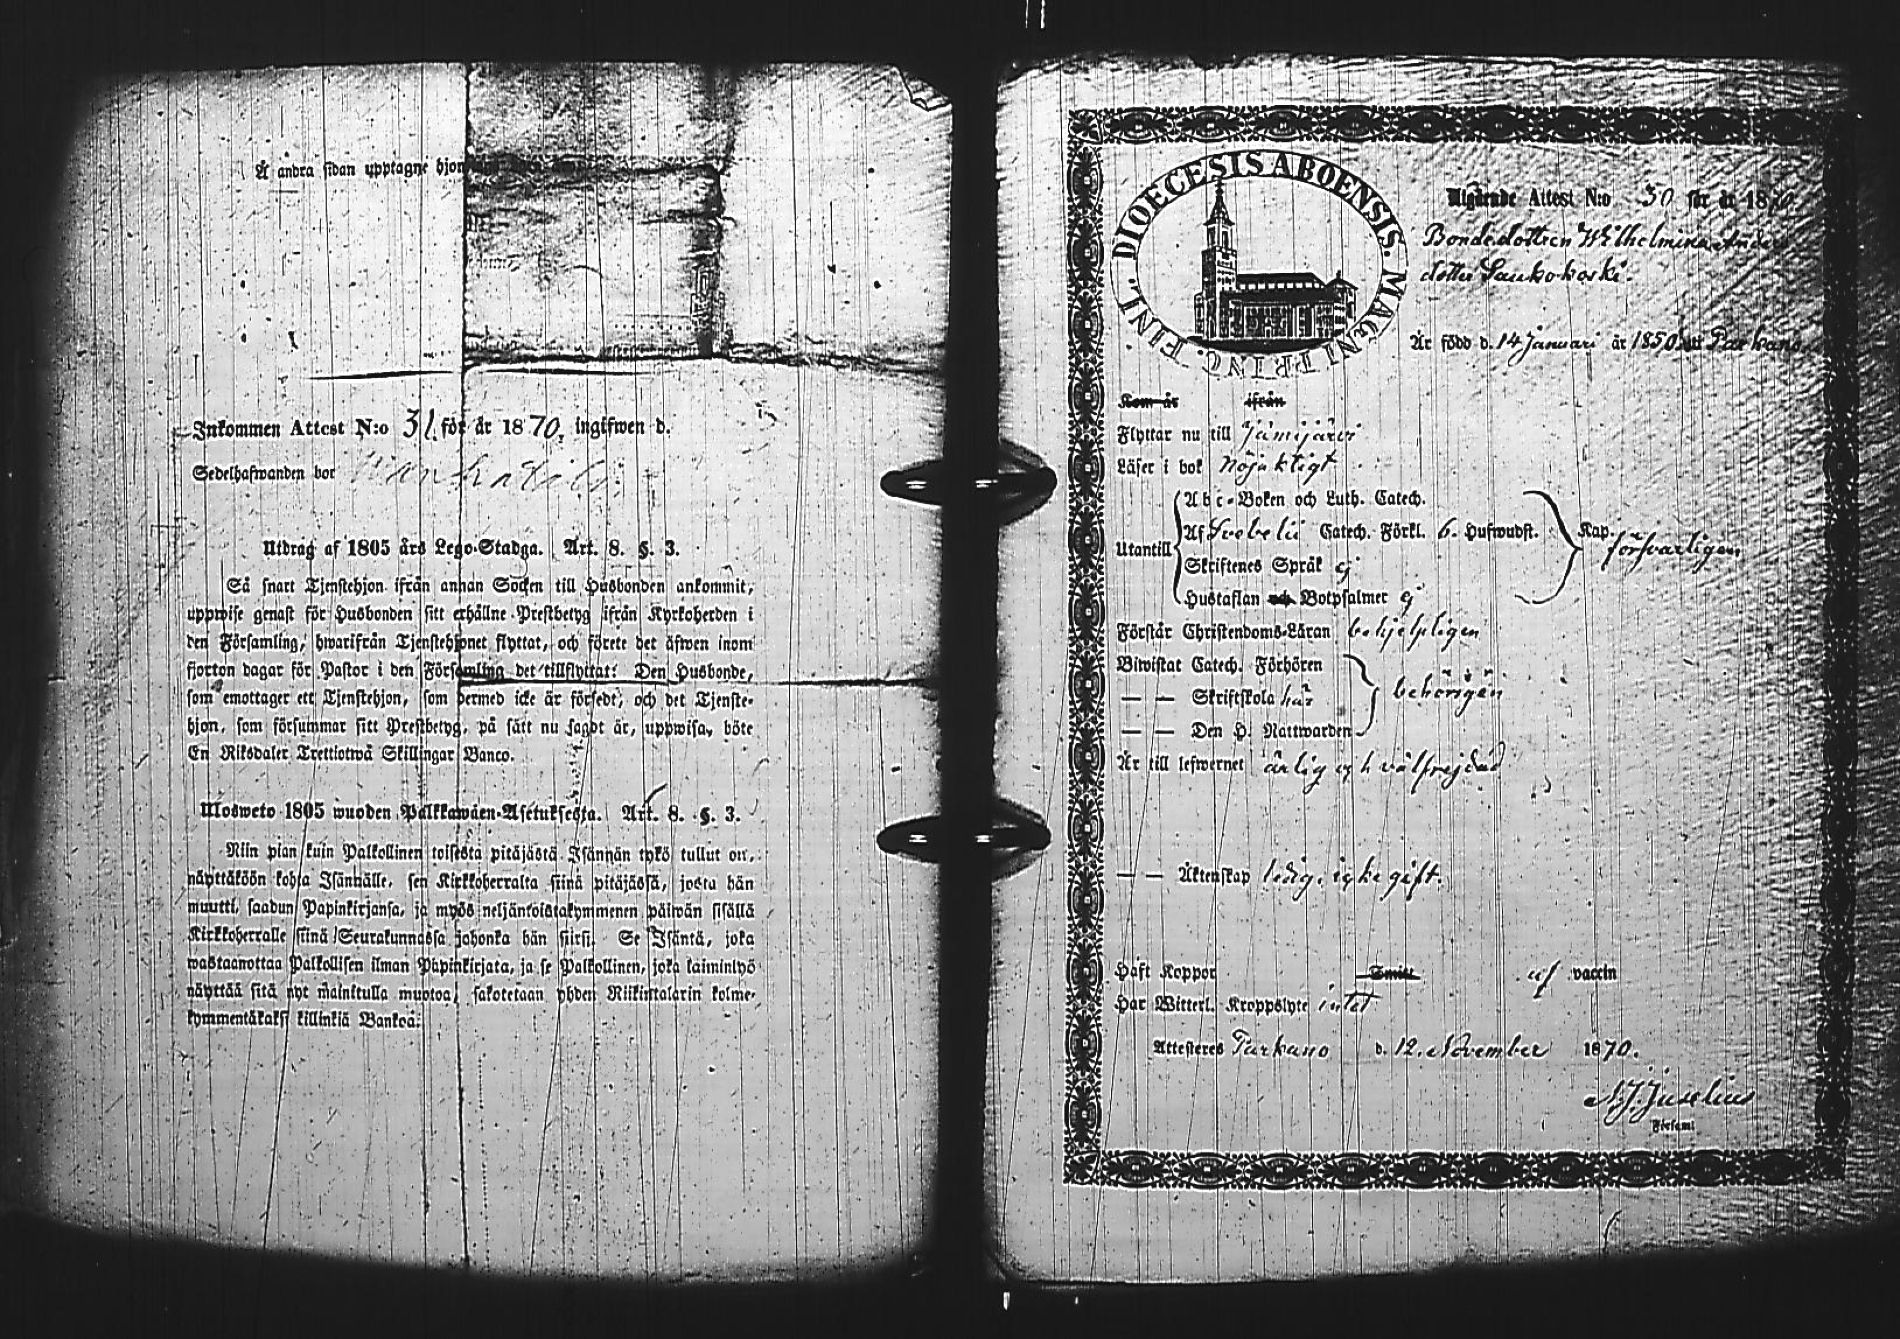 Å andra sidan upptagne hjon
Inkommen Attest N:o 31 för år 1870, ingifwen d.
Sedelhafwanden bor
Utdrag af 1805 års Lego-Stadga. Art. 8. §. 3.
Så snart Tjenstehjon ifrån annan Socken till Husbonden ankommit,
uppwise genast för Husbonden sitt erhållne Prestbetyg ifrån Kyrkoherden i
den Församling, hwarifrån Tjenstehjonet flyttat, och förete det äfwen inom
fjorton dagar för Pastor i den Församling det tillflyttat. Den Husbonde,
som emottager ett Tjenstehjon, som dermed icke är försedt, och det Tjenste-
hjon, som försummar sitt Prestbetyg, på sätt nu sagdt är, uppwisa, böte
En Riksdaler Trettiotwå Skillingar Banco.
Ulosweto 1805 wuoden Palkkawäen-Asetuksesta. Art. 8. §. 3.
Niin pian kuin Palkollinen toisesta pitäjästä Isännän tykö tullut on,
näyttäköön kohta Isännälle, sen Kirkkoherralta siinä pitäjässä, josta hän
muutti, saadun Papinkirjansa, ja myös neljäntoistakymmenen päiwän sisällä
Kirkkoherralle siinä Seurakunnassa johonka hän siirsi. Se Isäntä, joka
wastaanottaa Palkollisen ilman Papinkirjata, ja se Palkollinen, joka laiminlyö
näyttää sitä nyt mainitulla muotoa, sakotetaan yhden Riikintalarin kolme-
kymmentäkaksi killinkiä Bankoa.
DIOECESIS ABOENSIS. MAGNI PRINC. FINL.
Utgående Attest N:o 30 för år 1870
Bondedottren Wilhelmina Anders
dotter Laukokoski.
Är född d. 14 Januari år 1850 uti Parkano
Kom år ifrån
Flyttar nu till Jämijärvi
Läser i bok nöjaktigt
Utantill
Abc-Boken och Luth. Catech.
Af Svebelii Catech. Förkl. 6. Hufwudst. Kap. försvarligen
Skriftenes Språk ej
Hustaflan och Botpsalmer ej
Förstår Christendoms-Läran behjelpligen
Biwistat Catech. Förhören
— — Skriftskola här behörigen
— — Den H. Nattwarden
Är till lefwernet ärlig och välfrejdad
— — Äktenskap ledig, icke gift.
Haft Koppor Smitt af vaccin
Har Witterl. Kroppslyte intet
Attesteres Parkano d. 12. November 1870.
N. J. Juselius